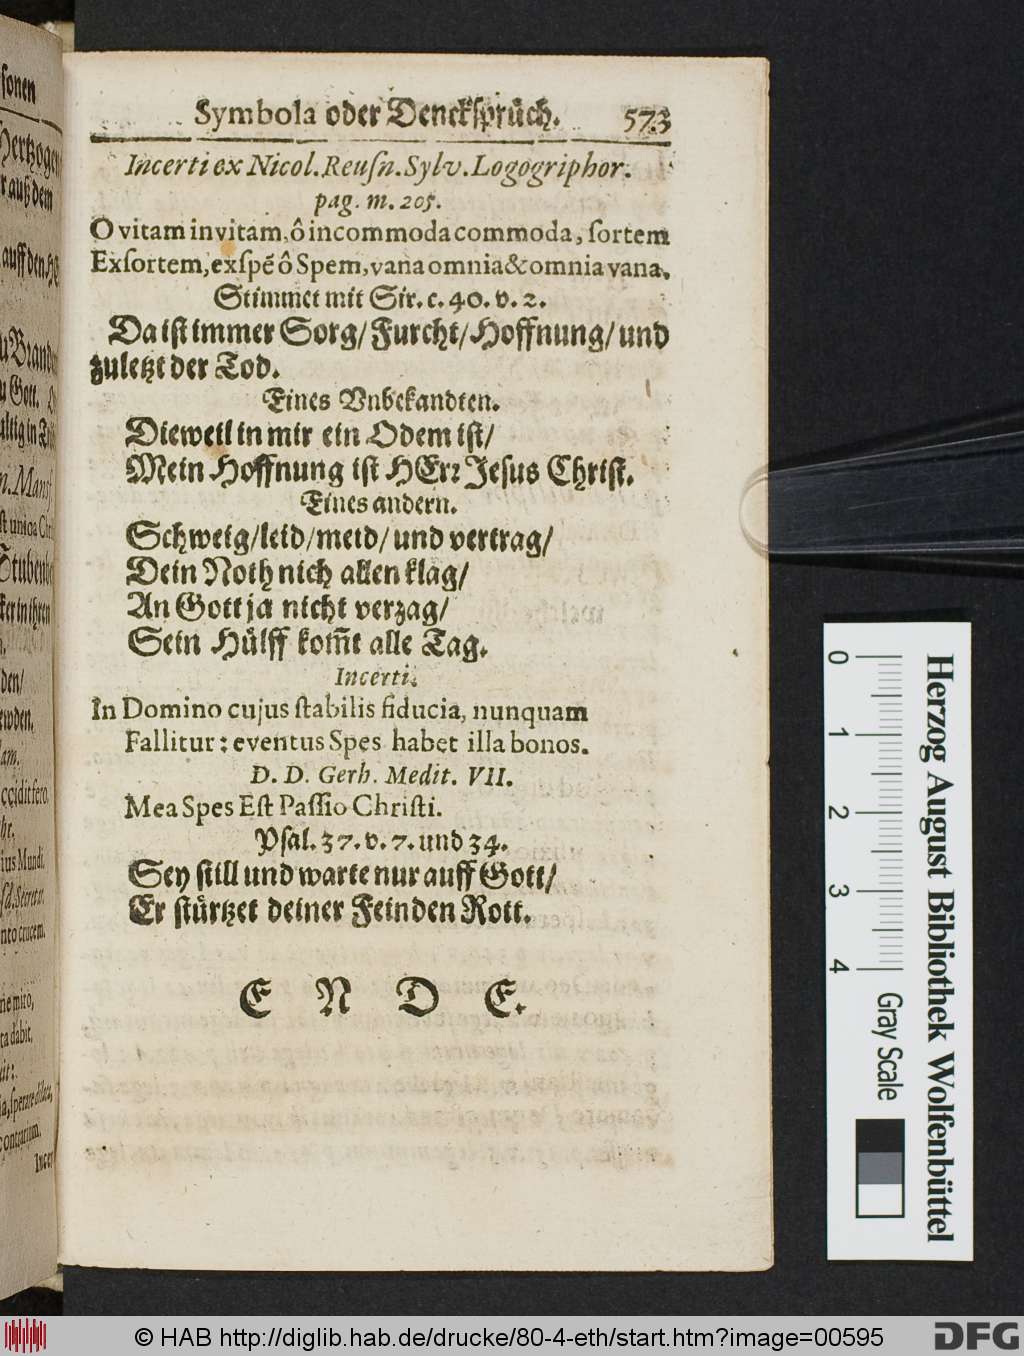 Symbola oder Denckſprüch. 573
Incerti ex Nicol. Reuſn. Sylv. Logogriphor.
pag. m. 205.
O vitam invitam, ô incommoda commoda, ſortem
Exſortem, exſpē ô Spem, vana omnia & omnia vana.
Stimmet mit Sir. c. 40. v. 2.
Da iſt immer Sorg/ Furcht/ Hoffnung/ und
zuletzt der Tod.
Eines Vnbekandten.
Dieweil in mir ein Odem iſt/
Mein Hoffnung iſt HErꝛ Jeſus Chriſt.
Eines andern.
Schweig/ leid/ meid/ und vertrag/
Dein Noth nich allen klag/
An Gott ja nicht verzag/
Sein Hülff kom̃t alle Tag.
Incerti.
In Domino cujus ſtabilis fiducia, nunquam
Fallitur: eventus Spes habet illa bonos.
D. D. Gerh. Medit. VII.
Mea Spes Eſt Paſſio Chriſti.
Pſal. 37. v. 7. und 34.
Sey ſtill und warte nur auff Gott/
Er ſtürtzet deiner Feinden Rott.
E N D E.
ſonen
Hertzogen
r auß dem
auff den
u Gott.
n. Manſ
Stubenbe
ker in ihren
den/
ccidit fero.
ius Mundi.
nto crucem.
ne miro,
ta dabit.
contrarium.
Incer
0 1 2 3 4
Gray Scale
Herzog August Bibliothek Wolfenbüttel
© HAB http://diglib.hab.de/drucke/80-4-eth/start.htm?image=00595
DFG